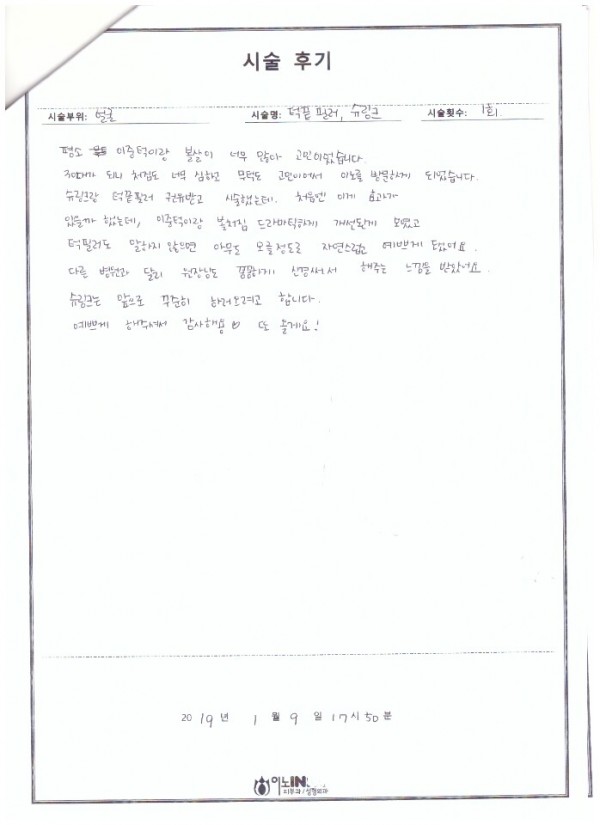 시술 후기
시술부위: 얼굴 시술명: 턱끝필러, 슈링크 시술횟수: 1회.
평소 이중턱이랑 볼살이 너무 많아 고민이었습니다.
30대가 되니 처짐도 너무 심하고 무턱도 고민이어서 이노를 방문하게 되었습니다.
슈링크랑 턱끝필러 권유받고 시술했는데. 처음엔 이게 효과가
있을까 했는데, 이중턱이랑 볼처짐 드라마틱하게 개선된게 보였고
턱필러도 말하지 않으면 아무도 모를정도로 자연스럽고 예쁘게 됐어요.
다른 병원과 달리 원장님도 꼼꼼하게 신경써서 해주는 느낌을 받았어요.
슈링크는 앞으로 꾸준히 하러오려고 합니다.
예쁘게 해주셔서 감사해용♡ 또 올게요!
2019년 1월 9일 17시 50분
이노IN
피부과/성형외과